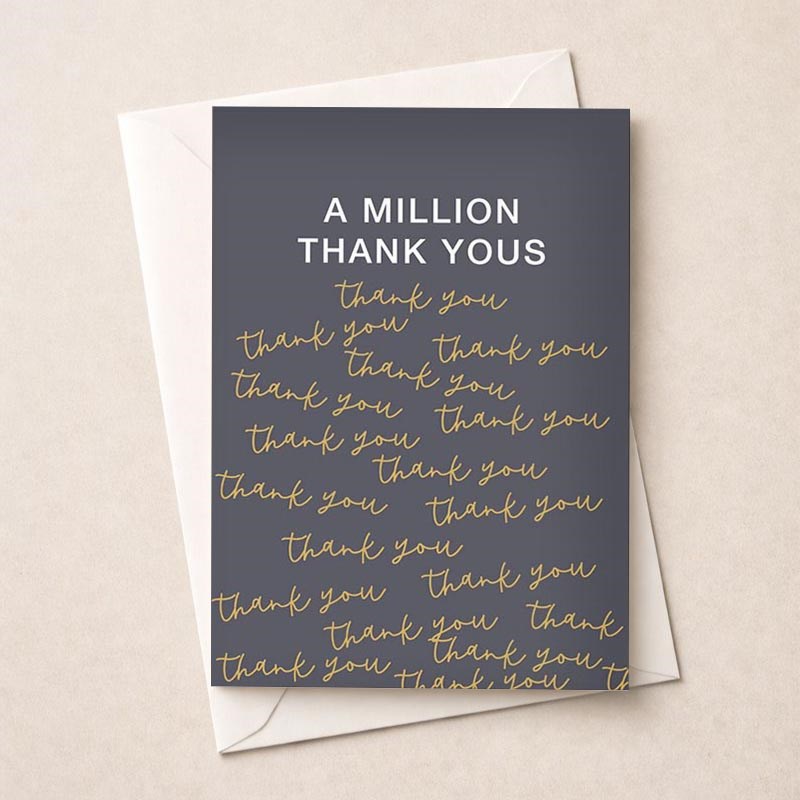 A MILLION
THANK YOUS
thank you
thank you
thank you
thank you
thank you
thank you
thank you
thank you
thank you
thank you
thank you
thank you
thank you
thank you
thank
thank you
thank you
thank you